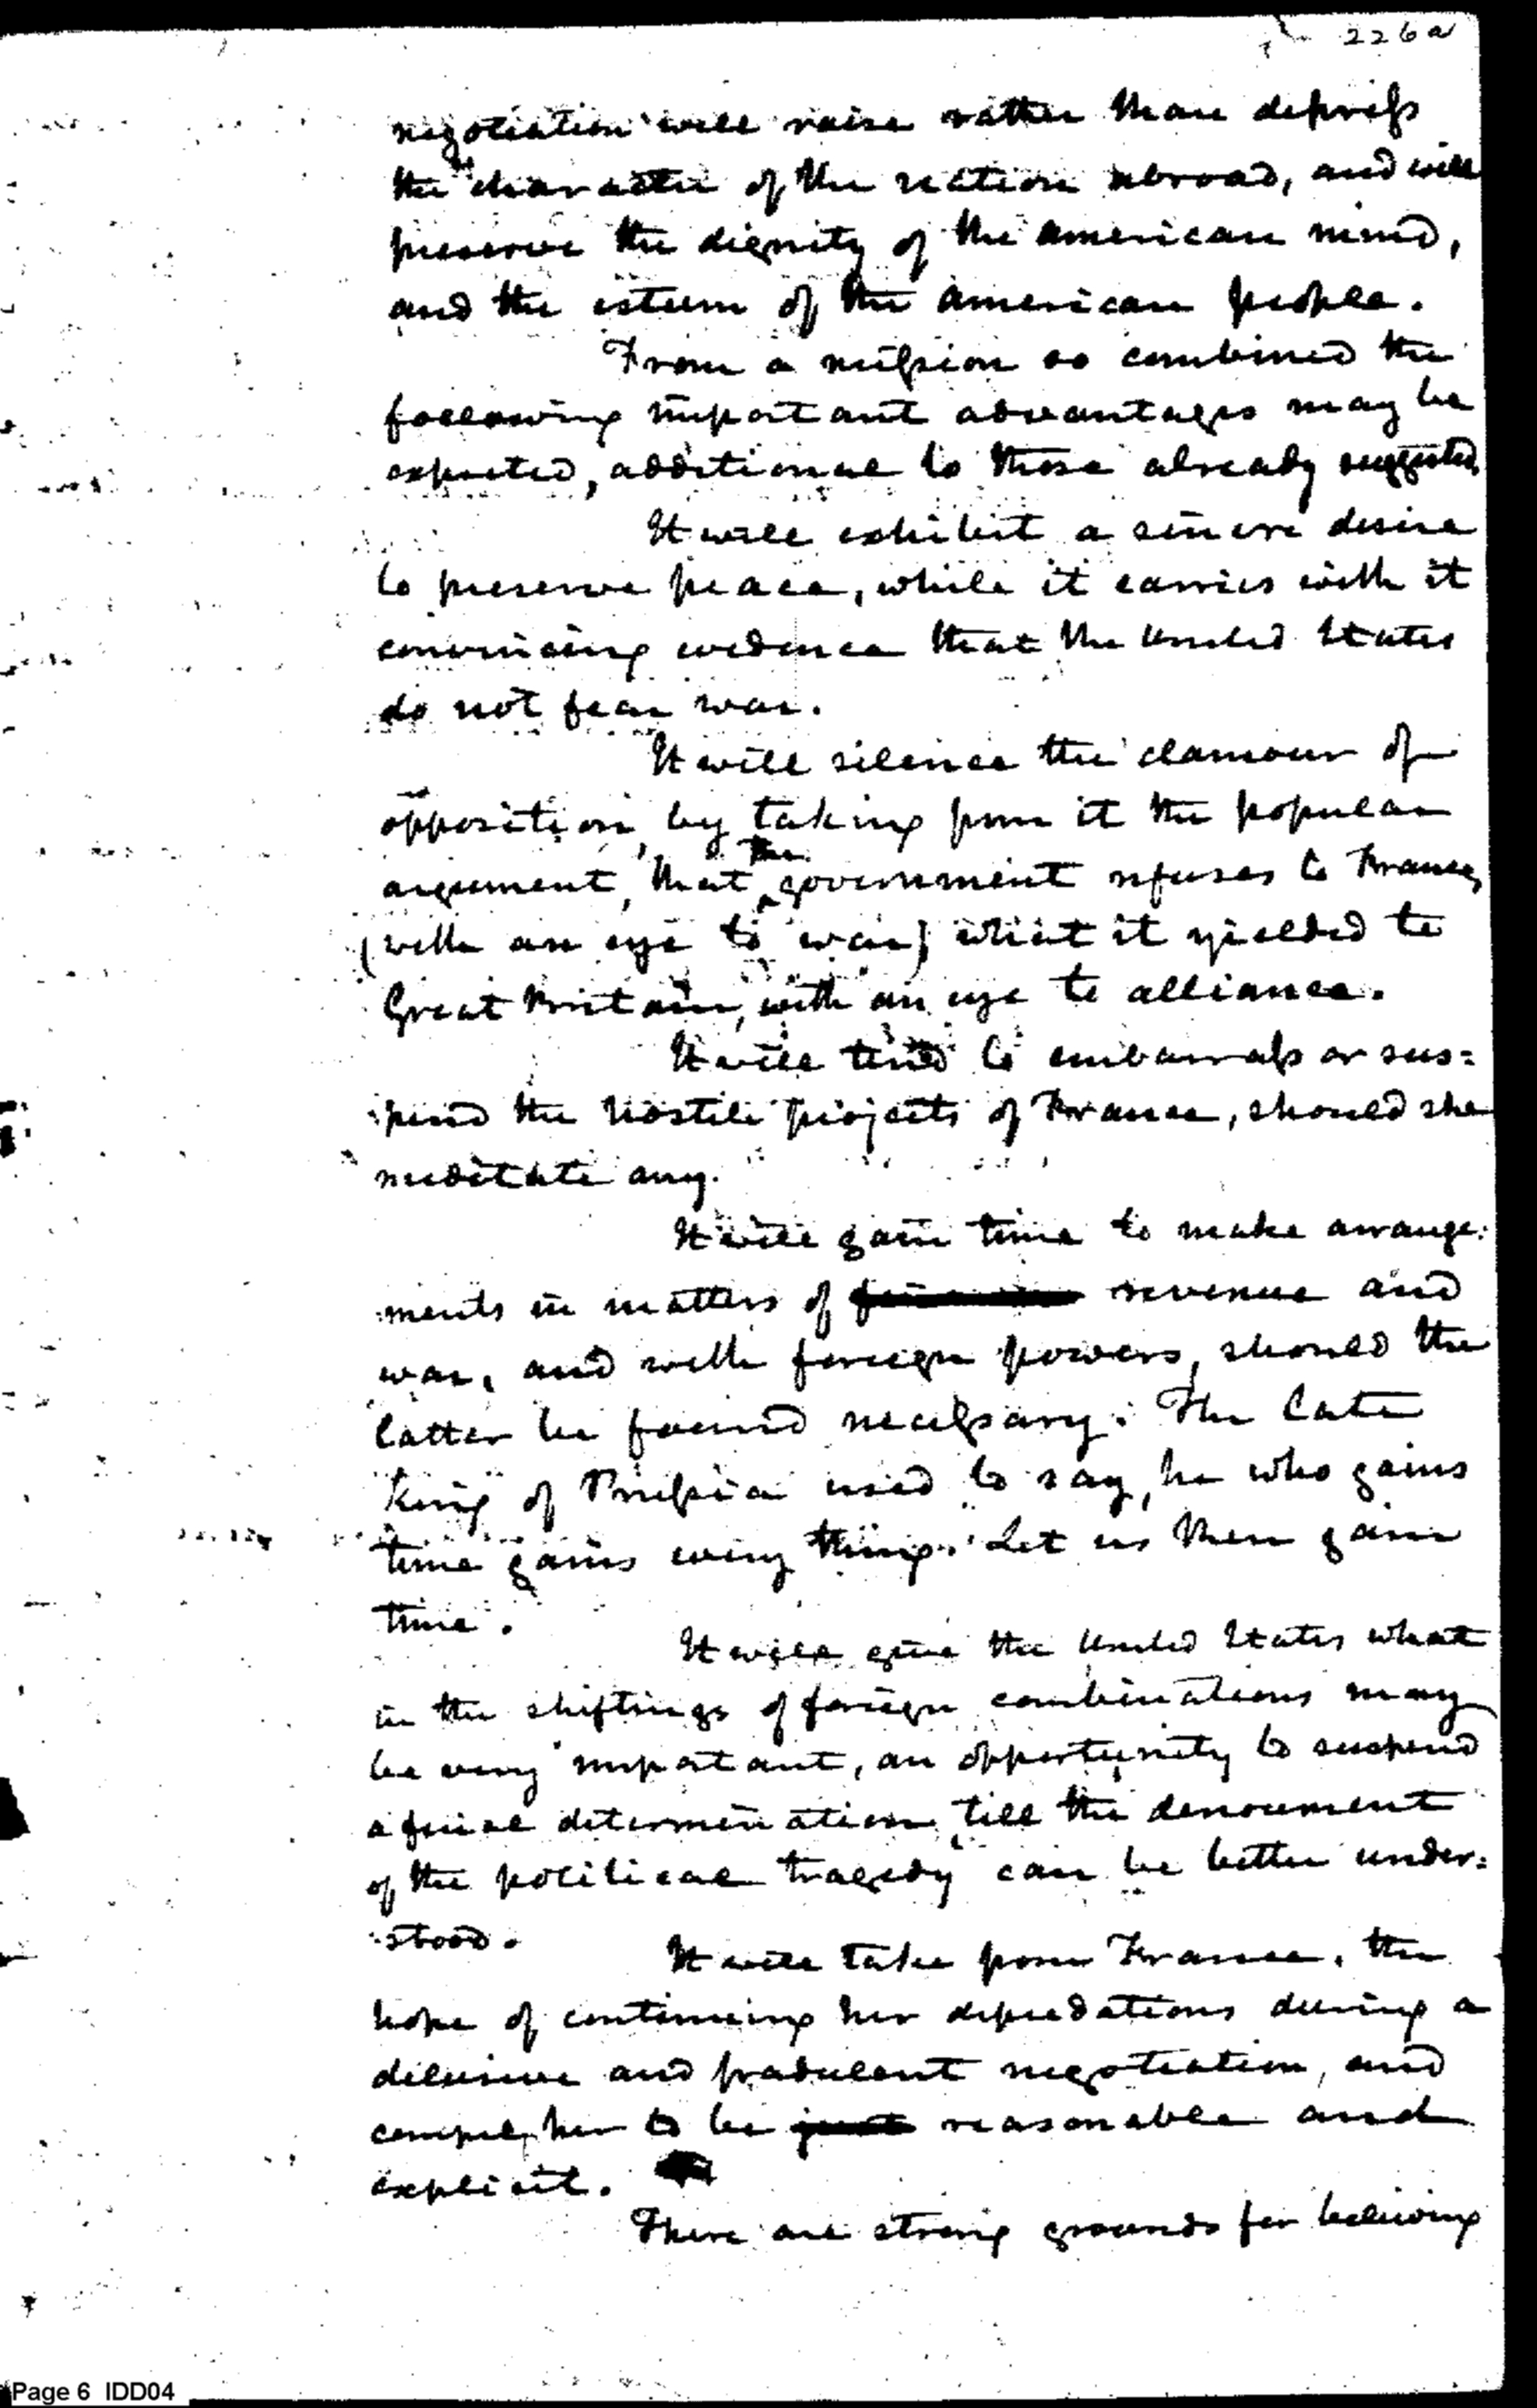 226a
negotiation will raise rather than depress
the character of the nation abroad, and will
preserve the dignity of the american mind,
and the esteem of the american people.
From a mission so combined the
following important advantages may be
expected, additional to those already suggested.
It will exhibit a sincere desire
to preserve peace, while it carries with it
convincing evidence that the United States
do not fear war.
It will silence the clamour of
opposition, by taking from it the popular
argument, that the government refuses to France,
(with an eye to war) what it yielded to
Great Britain, with an eye to alliance.
It will tend to embarrass or sus=
pend the hostile projects of France, should she
meditate any.
It will gain time to make arrange:
ments in matters of revenue and
war, and with foreign powers, should the
latter be found necessary. The late
King of Prussia used to say, he who gains
time gains every thing. Let us then gain
time.
It will give the United States what
in the shiftings of foreign combinations may
be very important, an opportunity to suspend
a final determination, till the denoument
of the political tragedy can be better under:
stood.
It will take from France, the
hope of continuing her depredations during a
delusive and fradulent negotiation, and
compel her to be just reasonable and
explicit.
There are strong grounds for believing
Page 6 IDD04